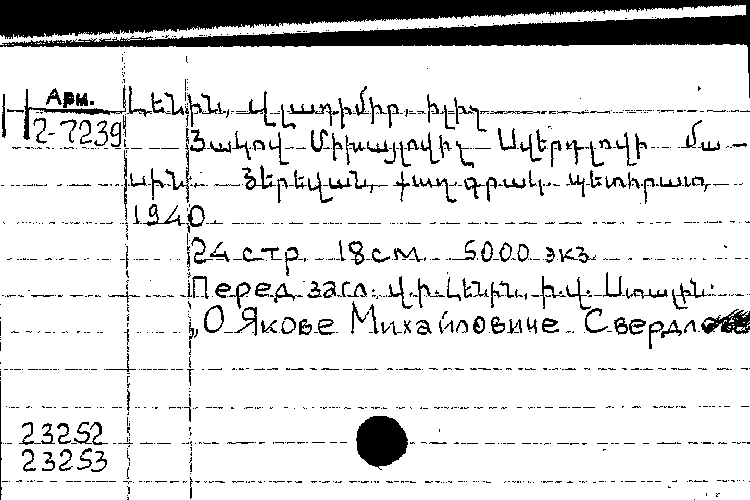 Арм.
2-7239
Լենին, Վլադիմիր, Իլիչ
Յակով Միխայլովիչ Սվերդլովի մա-
սին. Յերեվան, քաղ. գրակ. պետհրատ,
1940.
24 стр. 18 см. 5000 экз.
Перед загл. Վ. Ի. Լենին, Ի. Վ. Ստալին.
„О Якове Михайловиче Свердлове
23252
23253